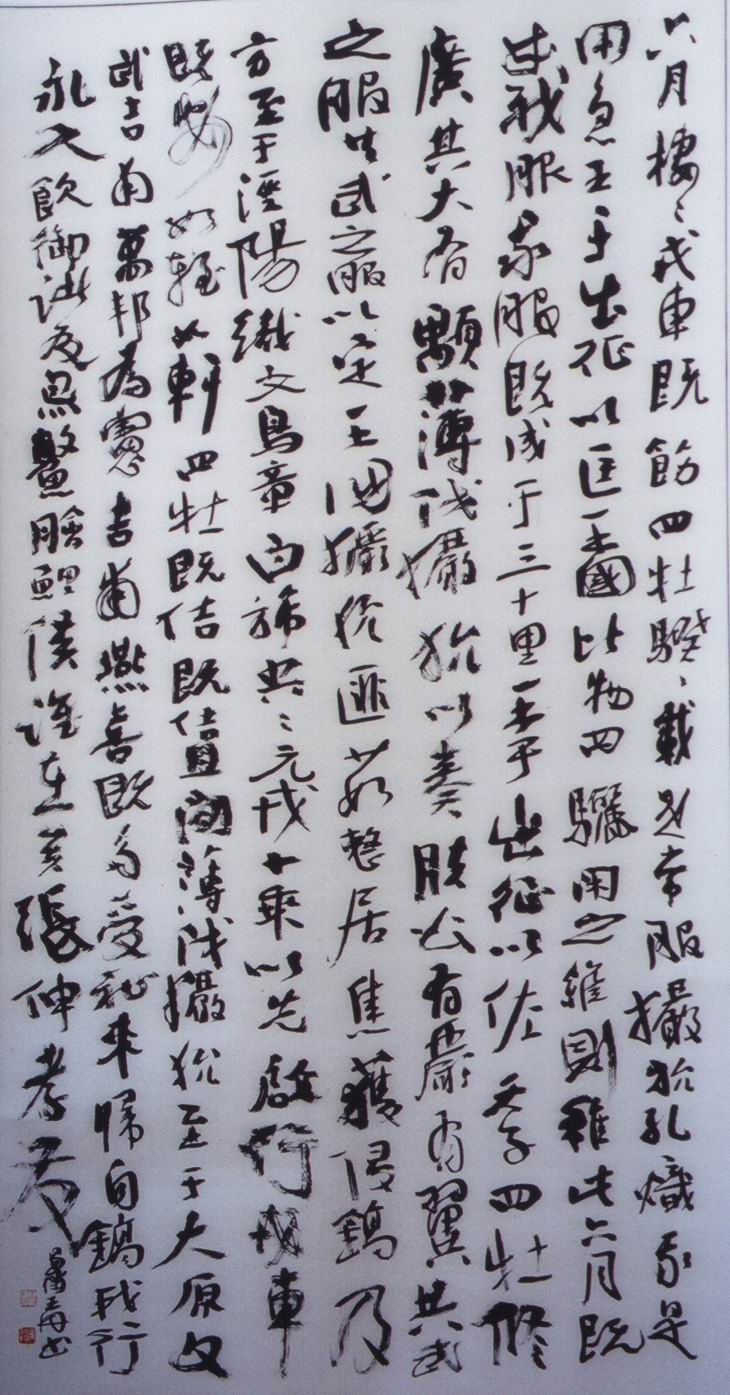 六月棲〻戎車既飭四牡騤〻載是常服玁狁孔熾我是
用急王于出征以匡王國比物四驪閑之維則維此六月既
成我服我服既成于三十里王于出征以佐天子四牡修
廣其大有顒薄伐玁狁以奏膚公有嚴有翼共武
之服共武之服以定王國玁狁匪茹整居焦獲侵鎬及
方至于涇陽織文鳥章白旆央〻元戎十乘以先啟行戎車
既安如輊如軒四牡既佶既佶且閑薄伐玁狁至于大原文
武吉甫萬邦為憲吉甫燕喜既多受祉來歸自鎬我行
永久飲御諸友炰鱉膾鯉侯誰在矣張仲孝友